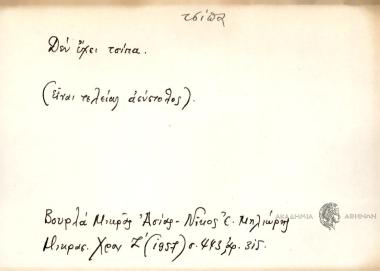 τσίπα
Δεν έχει τσίπα.
(Είναι τελείως
Βουρλά Μικρᾶς Ἀσίας - Νίκος Ε. Μηλιώρης
Μικρασ. Χρον Ζ΄ (1957) σ. 443 ἀρ. 315.
ΑΚΑΔΗΜΙΑ ΑΘΗΝΩΝ